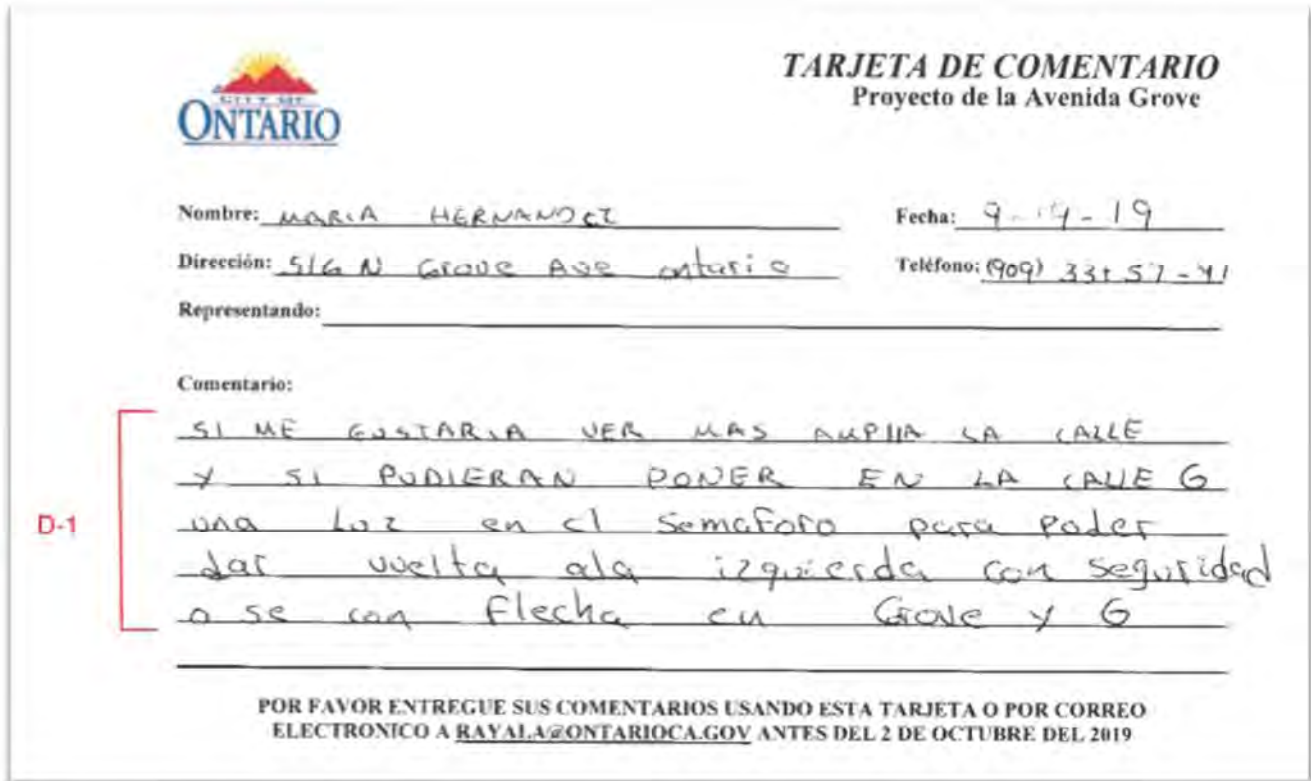 CITY OF
ONTARIO
TARJETA DE COMENTARIO
Proyecto de la Avenida Grove
Nombre: MARIA HERNANDEZ
Fecha: 9-19-19
Dirección: 516 N Grove Ave ontario
Teléfono: (909)
Representando:
Comentario:
D-1
SI ME GUSTARIA VER MAS AMPLIA LA CALLE
Y SI PUDIERAN PONER EN LA CALLE G
una Luz en el Semaforo para Poder
dar vuelta ala izquierda con seguridad
o se con Flecha en Grove y G
POR FAVOR ENTREGUE SUS COMENTARIOS USANDO ESTA TARJETA O POR CORREO
ELECTRONICO A RAYALA@ONTARIOCA.GOV ANTES DEL 2 DE OCTUBRE DEL 2019